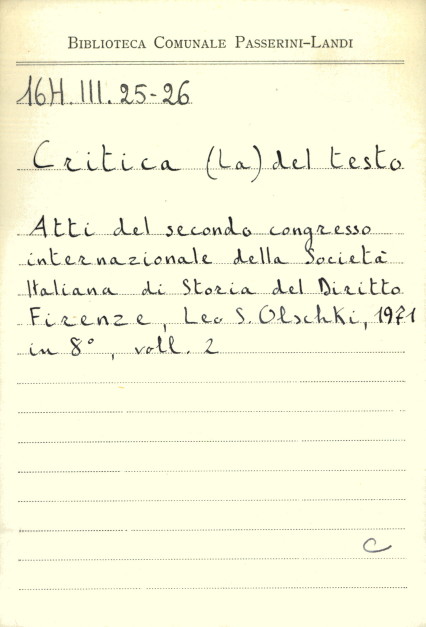 BIBLIOTECA COMUNALE PASSERINI-LANDI
16H.III.25-26
Critica (La) del testo
Atti del secondo congresso
internazionale della Società
Italiana di Storia del Diritto
Firenze, Leo S. Olschki, 1971
in 8°, voll. 2
C